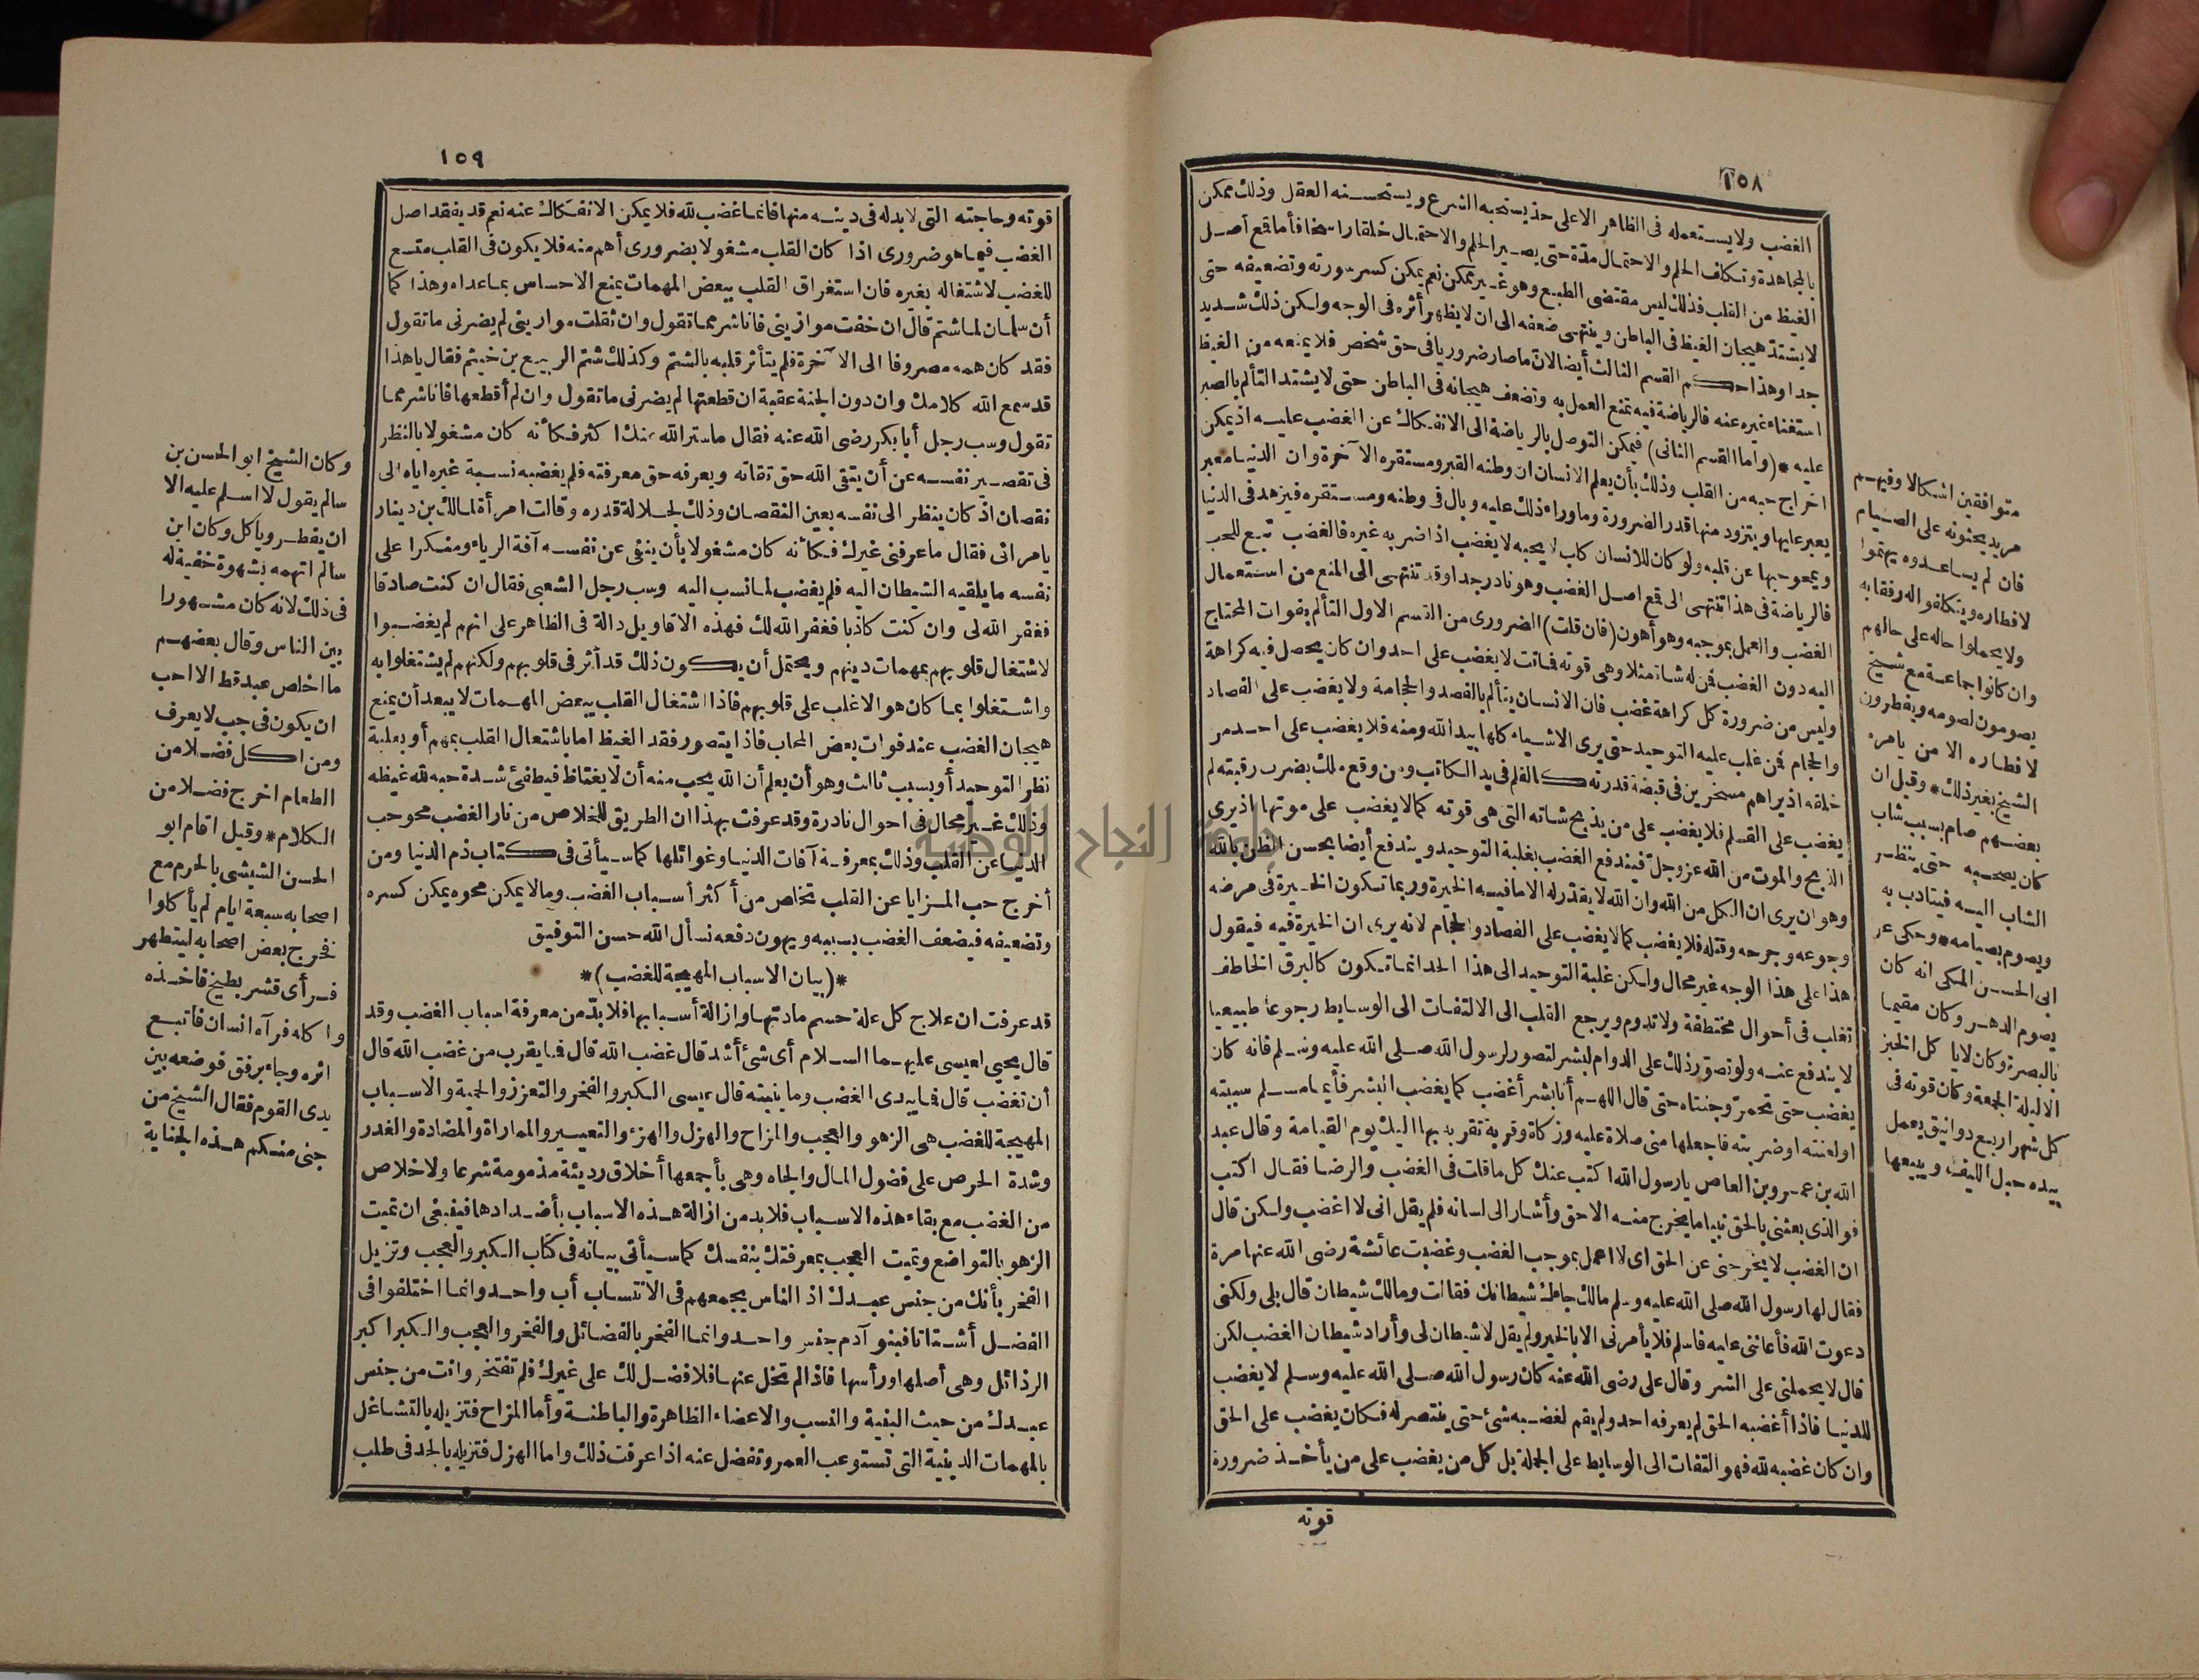 ١٥٨
الغضب ولا يستعمله فى الظاهر الا على حد يستحبه الشرع ويستحسنه العقل وذلك ممكن
بالمجاهدة وتكلف الحلم والاحتمال مدة حتى يصير الحلم والاحتمال خلقا راسخا فأما قمع أصل
الغيظ من القلب فذلك ليس مقتضى الطبع وهو غير ممكن نعم يمكن كسر سورته وتضعيفه حتى
لا يشتد هيجان الغيظ فى الباطن وينتهى ضعفه الى ان لا يظهر أثره فى الوجه ولكن ذلك شديد
جدا وهذا حكم القسم الثالث أيضا لان ما صار ضروريا فى حق شخص فلا يمنعه من الغيظ
استغناء غيره عنه فالرياضة فيه تمنع العمل به وتضعف هيجانه فى الباطن حتى لا يشتد التألم بالصبر
عليه * (واما القسم الثانى) فيمكن التوصل بالرياضة الى الانفكاك عن الغضب عليه اذ يمكن
اخراج حبه من القلب وذلك بأن يعلم الانسان ان وطنه القبر ومستقره الآخرة وان الدنيا معبر
يعبر عليها ويتزود منها قدر الضرورة وما وراء ذلك عليه وبال فى وطنه ومستقره فيزهد فى الدنيا
ويمحو حبها عن قلبه ولو كان للانسان كلب لا يحبه لا يغضب اذا ضربه غيره فالغضب تبع للحب
فالرياضة فى هذا تنتهى الى قمع اصل الغضب وهو نادر جدا وقد تنتهى الى المنع من استعمال
الغضب والعمل بموجبه وهو أهون (فان قلت) الضرورى من القسم الاول التألم بفوات المحتاج
اليه دون الغضب فمن له شاة مثلا وهى قوته فماتت لا يغضب على احد وان كان يحصل فيه كراهة
وليس من ضرورة كل كراهة غضب فان الانسان يتألم بالفصد والحجامة ولا يغضب على الفصاد
والحجام فمن غلب عليه التوحيد حتى يرى الاشياء كلها بيد الله ومنه فلا يغضب على احد من
خلقه اذ يراهم مسخرين فى قبضة قدرته كالقلم فى يد الكاتب ومن وقع ملك بضرب رقبته لم
يغضب على القلم فلا يغضب على من يذبح شاته التى هى قوته كما لا يغضب على موتها اذ يرى
الذبح والموت من الله عز وجل فيندفع الغضب بغلبة التوحيد ويندفع أيضا بحسن الظن بالله
وهو ان يرى ان الكل من الله وان الله لا يقدر له الا ما فيه الخيرة وربما تكون الخيرة فى مرضه
وجوعه وجرحه وقتله فلا يغضب كما لا يغضب على الفصاد والحجام لانه يرى ان الخيرة فيه فيقول
هذا على هذا الوجه غير محال ولكن غلبة التوحيد الى هذا الحد انما تكون كالبرق الخاطف
تغلب فى أحوال مختطفة ولا تدوم ويرجع القلب الى الالتفات الى الوسايط رجوعا طبيعيا
لا يندفع عنه ولو تصور ذلك على الدوام لبشر لتصور لرسول الله صلى الله عليه وسلم فانه كان
يغضب حتى تحمر وجنتاه حتى قال اللهم أنا بشر أغضب كما يغضب البشر فأيما مسلم سببته
او لعنته او ضربته فاجعلها منى صلاة عليه وزكاة وقربة تقربه بها اليك يوم القيامة وقال عبد
الله بن عمرو بن العاص يا رسول الله اكتب عنك كل ما قلت فى الغضب والرضا فقال اكتب
فو الذى بعثنى بالحق نبيا ما يخرج منه الا حق وأشار الى لسانه فلم يقل انى لا اغضب ولكن قال
ان الغضب لا يخرجنى عن الحق اى لا اعمل بموجب الغضب وغضبت عائشة رضى الله عنها مرة
فقال لها رسول الله صلى الله عليه وسلم مالك جاءك شيطانك فقالت ومالك شيطان قال بلى ولكنى
دعوت الله فأعاننى عليه فاسلم فلا يأمرنى الا بالخير ولم يقل لا شيطان لى وأراد شيطان الغضب لكن
قال لا يحملنى على الشر وقال على رضى الله عنه كان رسول الله صلى الله عليه وسلم لا يغضب
للدنيا فاذا أغضبه الحق لم يعرفه احد ولم يقم لغضبه شئ حتى ينتصر له فكان يغضب على الحق
وان كان غضبه لله فهو التفات الى الوسايط على الجملة بل كل من يغضب على من يأخذ ضرورة
قوته
متوافقين اشكالا وفيهم
مريد يحثونه على الصيام
فان لم يساعدوه يهتموا
لافطاره ويتكلفوا له رفقا به
ولا يحملوا حاله على حالهم
وان كانوا جماعة مع شيخ
يصومون لصومه ويفطرون
لافطاره الا من يامره
الشيخ بغير ذلك * وقيل ان
بعضهم صام بسبب شاب
كان يصحبه حتى ينظر
الشاب اليه فيتادب به
ويصوم بصيامه * وحكى عن
ابى الحسن المكى انه كان
يصوم الدهر وكان مقيما
بالبصرة وكان لا يا كل الخبز
الا ليلة الجمعة وكان قوته فى
كل شهر اربع دوانيق يعمل
بيده حبل الليف ويبيعها
١٥٩
قوته وحاجته التى لا بد له فى دينه منها فانما غضب لله فلا يمكن الانفكاك عنه نعم قد يفقد اصل
الغضب فيما هو ضرورى اذا كان القلب مشغولا بضرورى أهم منه فلا يكون فى القلب متسع
للغضب لاشتغاله بغيره فان استغراق القلب ببعض المهمات يمنع الاحساس بما عداه وهذا كما
أن سلمان لما شتم قال ان خفت موازينى فانا شر مما تقول وان ثقلت موازينى لم يضرنى ما تقول
فقد كان همه مصروفا الى الآخرة فلم يتأثر قلبه بالشتم وكذلك شتم الربيع بن خيثم فقال يا هذا
قد سمع الله كلامك وان دون الجنة عقبة ان قطعتها لم يضرنى ما تقول وان لم أقطعها فانا شر مما
تقول وسب رجل أبا بكر رضى الله عنه فقال ما ستر الله عنك اكثر فكأنه كان مشغولا بالنظر
فى تقصير نفسه عن أن يتقى الله حق تقاته ويعرفه حق معرفته فلم يغضبه نسبة غيره اياه الى
نقصان اذ كان ينظر الى نفسه بعين النقصان وذلك لجلالة قدره وقالت امرأة لمالك بن دينار
يا مرائى فقال ما عرفنى غيرك فكأنه كان مشغولا بأن ينفى عن نفسه آفة الرياء ومنكرا على
نفسه ما يلقيه الشيطان اليه فلم يغضب لما نسب اليه وسب رجل الشعبى فقال ان كنت صادقا
فغفر الله لى وان كنت كاذبا فغفر الله لك فهذه الاقاويل دالة فى الظاهر على انهم لم يغضبوا
لاشتغال قلوبهم بمهمات دينهم ويحتمل أن يكون ذلك قد أثر فى قلوبهم ولكنهم لم يشتغلوا به
واشتغلوا بما كان هو الاغلب على قلوبهم فاذا اشتغال القلب ببعض المهمات لا يبعد أن يمنع
هيجان الغضب عند فوات بعض المحاب فاذا يتصور فقد الغيظ اما باشتغال القلب بمهم أو بغلبة
نظر التوحيد أو بسبب ثالث وهو أن يعلم أن الله يحب منه أن لا يغتاظ فيطفئ شدة حبه لله غيظه
وذلك غير محال فى احوال نادرة وقد عرفت بهذا ان الطريق للخلاص من نار الغضب محو حب
الدنيا عن القلب وذلك بمعرفة آفات الدنيا وغوائلها كما سيأتى فى كتاب ذم الدنيا ومن
أخرج حب المزايا عن القلب تخلص من أكثر أسباب الغضب وما لا يمكن محوه يمكن كسره
وتضعيفه فيضعف الغضب بسببه ويهون دفعه نسأل الله حسن التوفيق
*(بيان الاسباب المهيجة للغضب)*
قد عرفت ان علاج كل علة حسم مادتها وازالة أسبابها فلا بد من معرفة اسباب الغضب وقد
قال يحيى لعيسى عليهما السلام أى شئ أشد قال غضب الله قال فما يقرب من غضب الله قال
أن تغضب قال فما يبدى الغضب وما ينبته قال عيسى الكبر والفخر والتعزز والحمية والاسباب
المهيجة للغضب هى الزهو والعجب والمزاح والهزل والهزء والتعيير والمماراة والمضادة والغدر
وشدة الحرص على فضول المال والجاه وهى بأجمعها أخلاق رديئة مذمومة شرعا ولا خلاص
من الغضب مع بقاء هذه الاسباب فلا بد من ازالة هذه الاسباب بأضدادها فينبغى ان تميت
الزهو بالتواضع وتميت العجب بمعرفتك بنفسك كما سيأتى بيانه فى كتاب الكبر والعجب وتزيل
الفخر بأنك من جنس عبدك اذ الناس يجمعهم فى الانتساب أب واحد وانما اختلفوا فى
الفضل أشتاتا فبنو آدم جنس واحد وانما الفخر بالفضائل والفخر والعجب والكبر اكبر
الرذائل وهى أصلها ورأسها فاذا لم تخل عنها فلا فضل لك على غيرك فلم تفتخر وانت من جنس
عبدك من حيث البنية والنسب والاعضاء الظاهرة والباطنة وأما المزاح فتزيله بالتشاغل
بالمهمات الدينية التى تستوعب العمر وتفضل عنه اذا عرفت ذلك واما الهزل فتزيله بالجد فى طلب
وكان الشيخ ابو الحسن بن
سالم يقول لا اسلم عليه الا
ان يفطر ويأكل وكان ابن
سالم اتهمه بشهوة خفية له
فى ذلك لانه كان مشهورا
بين الناس وقال بعضهم
ما اخلص عبد قط الا احب
ان يكون فى جب لا يعرف
ومن اكل فضلا من
الطعام اخرج فضلا من
الكلام * وقيل اقام ابو
الحسن الشيشى بالحرم مع
اصحابه سبعة ايام لم يأكلوا
فخرج بعض اصحابه ليتطهر
فرأى قشر بطيخ فاخذه
واكله فرآه انسان فاتبع
اثره وجاء برفق فوضعه بين
يدى القوم فقال الشيخ من
جنى منكم هذه الجناية
جامعة النجاح الوطنية